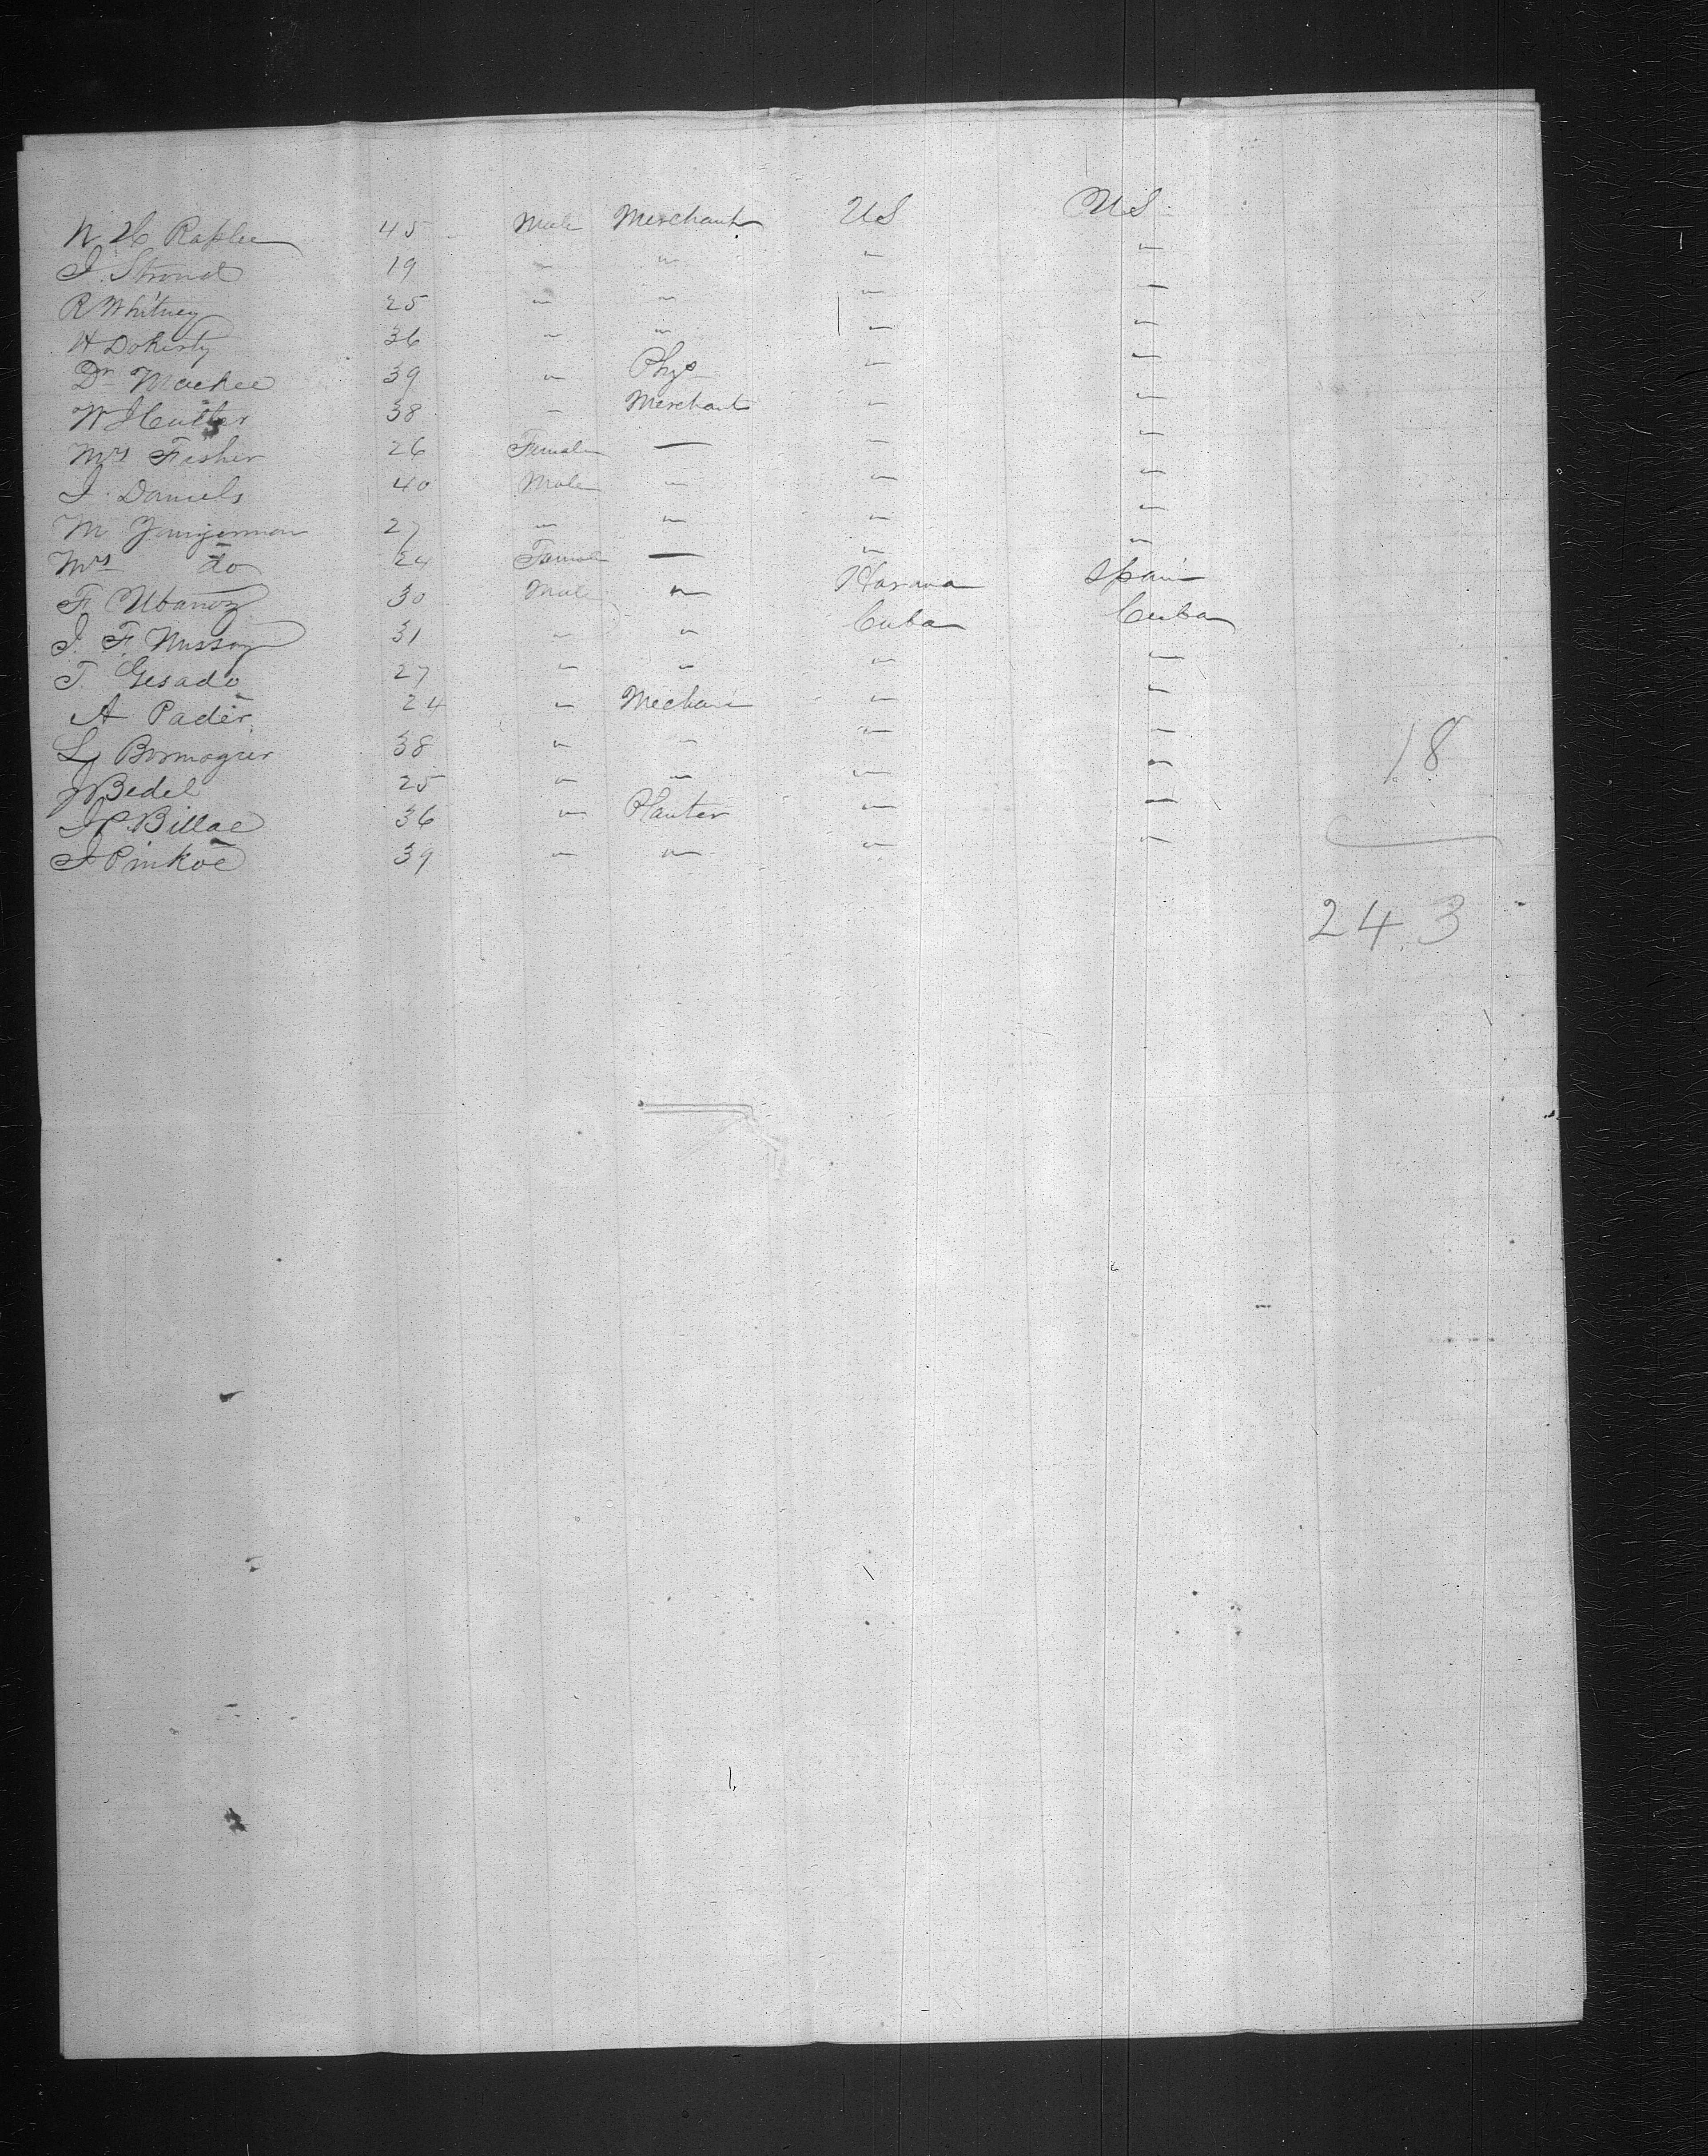 N H Raplee 45 Male Merchant US US
J. Stroud 19 " " " "
R Whitney 25 " " " "
H Doherty 36 " " " "
Dr Mackee 39 " Phys " "
W J Cutler 38 " Merchant " "
Mrs Fasher 26 Female — " "
J. Daniels 40 Male " " "
M. Youngerman 27 " " " "
Mrs do 24 Female — " "
F. Ubanoz 30 Male " Havana Spain
J. F. Nusson 31 " " Cuba Cuba
T. Gesado 27 " " " "
A Pader 24 " Mechanic " "
L Bormogier 38 " " " "
J Bedel 25 " " " "
J P. Billae 36 " Planter " "
J Pinkoe 39 " " " "
18
243